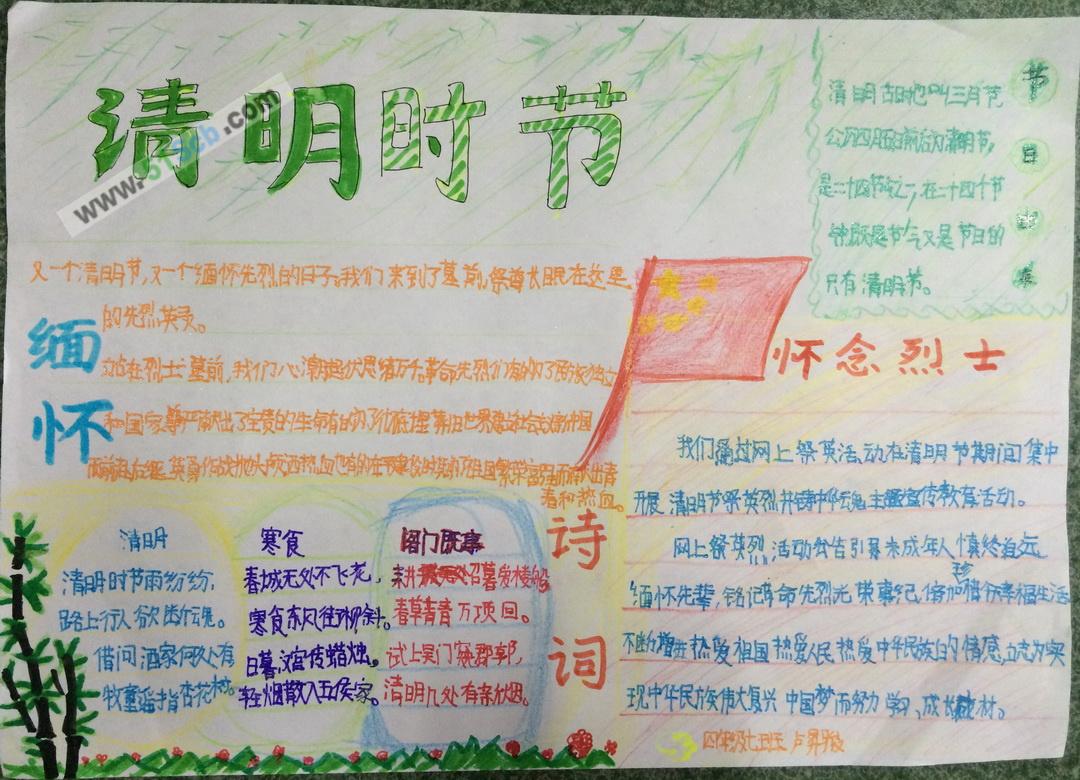 清明时节
www.51scb.com
清明古时也叫三月节
公历四月五日前后为清明节,
是二十四节气之一,在二十四个节
钟既是节气又是节日的
只有清明节。
节
日
又一个清明节,又一个缅怀先烈的日子。我们来到了墓前,祭奠长眠在这里
的先烈英灵。
缅怀
站在烈士墓前,我们心潮起伏思绪万千。革命先烈们有的为了民族独立
和国家尊严献出了宝贵的生命有的为了
春和热血。
怀念烈士
我们通过网上祭英活动在清明节期间集中
开展清明节祭英烈共铸中华魂主题宣传教育活动。
网上祭英烈活动公告引导未成年人慎终追远。
缅怀先辈,铭记革命先烈光荣事纪,倍加珍惜幸福生活
不断增进热爱祖国热爱人民热爱中华民族的情感,立志为实
现中华民族伟大复兴中国梦而努力学习,成长成材。
四年级七班
诗词
清明
清明时节雨纷纷,
路上行人欲断魂。
借问酒家何处有
牧童遥指杏花村。
寒食
春城无处不飞花,
寒食东风往柳斜。
日暮汉宫传蜡烛。
轻烟散入五侯家。
春草青青万顷田。
试上吴门窥郡郭,
清明几处有新烟。